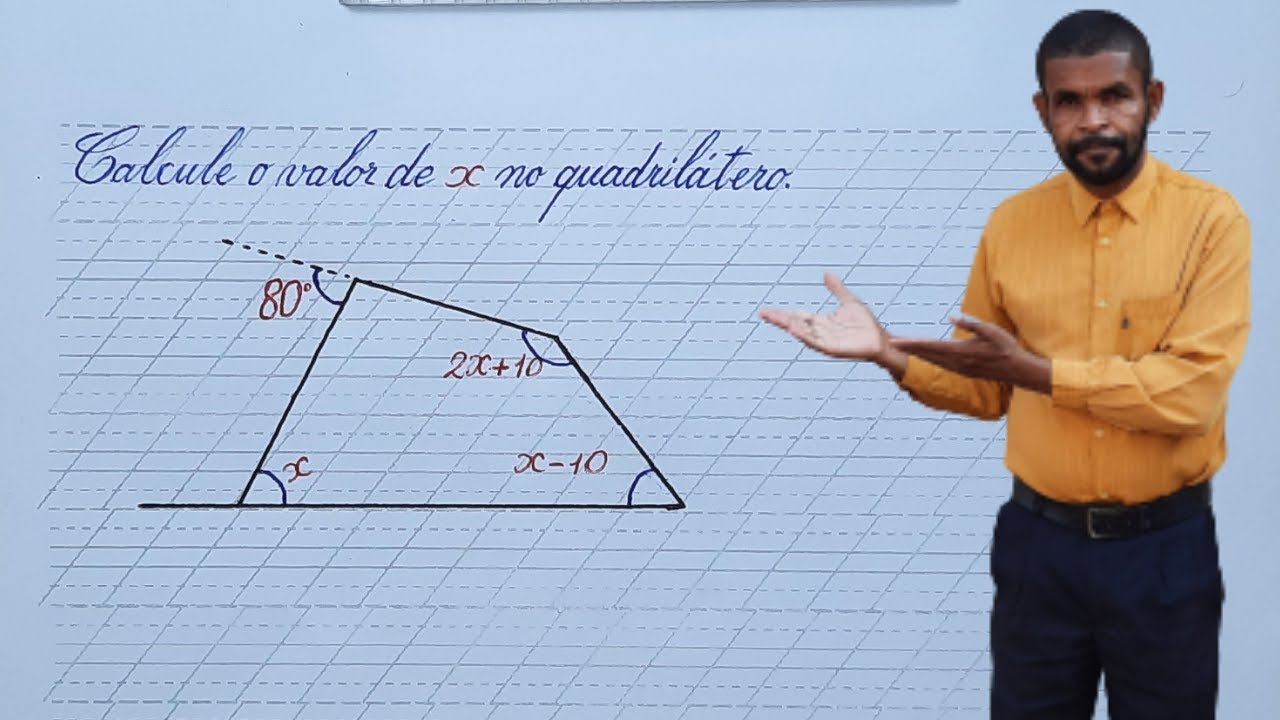 Calcule o valor de x no quadrilátero.
80°
2x+10
x-10
x